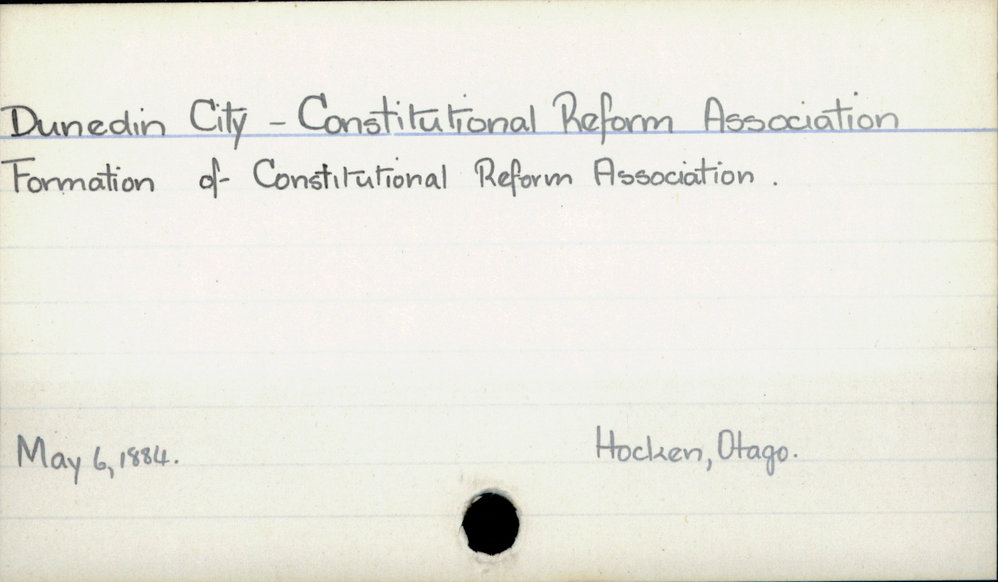 Dunedin City - Constitutional Reform Association
Formation of Constitutional Reform Association.
May 6, 1884. Hocken, Otago.